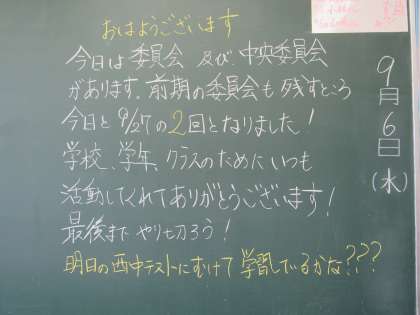 おはようございます
今日は委員会 及び 中央委員会
があります。前期の委員会も残すところ
今日と9/27の2回となりました!
学校、学年、クラスのために いつも
活動してくれてありがとうございます!
最後まで やり切ろう!
明日の西中テストにむけて学習しているかな???
9月6日(水)